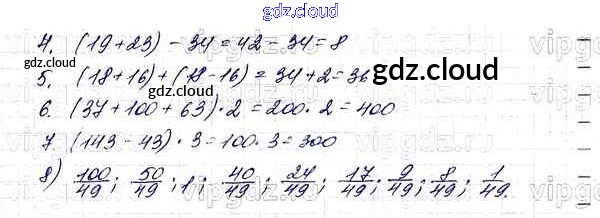 gdz.cloud
4. (19+23) - 34 = 42 - 34 = 8
gdz.cloud
5. (18+16)+(18-16) = 34+2=36
gdz.cloud
6. (37+100+63)·2 = 200·2 = 400
7. (143-43)·3=100·3=300
8) 100/49; 50/49; 1; 40/49; 24/49; 17/49; 9/49; 8/49; 1/49.
gdz.cloud